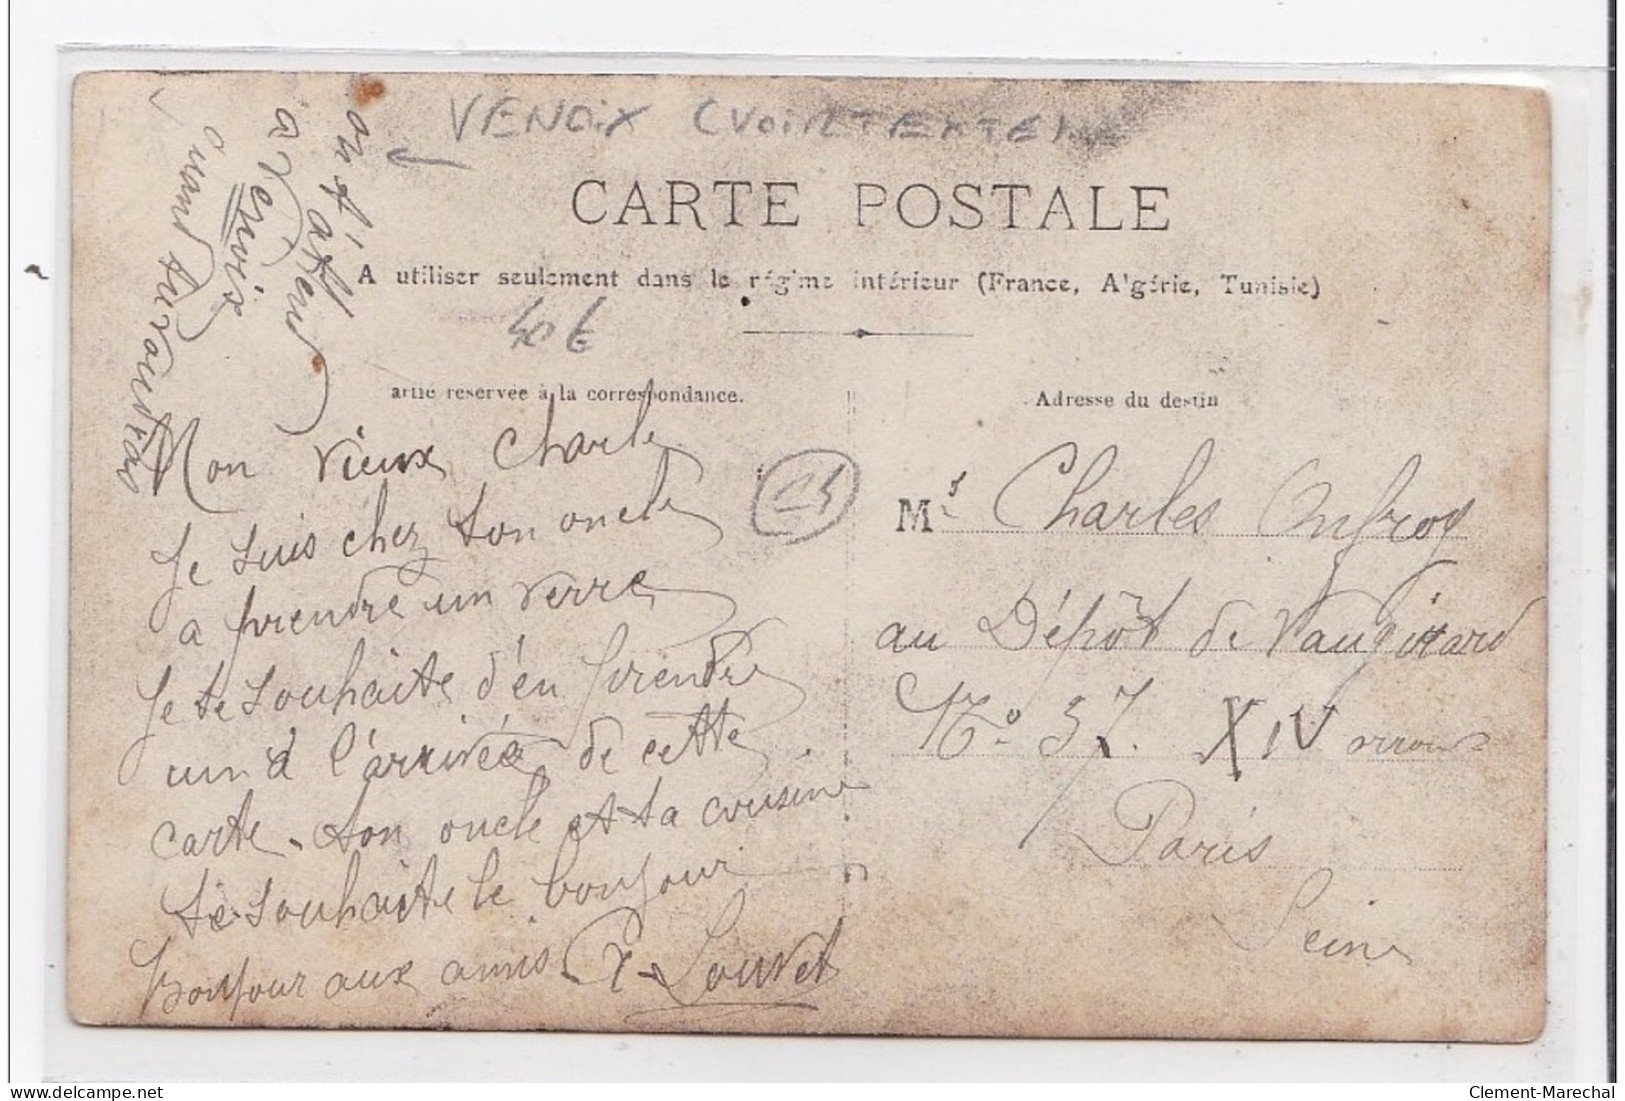 VENOIX (VOIR TEXTE)
CARTE POSTALE
A utiliser seulement dans le régime intérieur (France, A'gérie, Tunisie)
40€
artie réservée à la correspondance.
Adresse du destin
on t'attend
a venoix
quand tu voudras
Mon vieux Charle
Je suis chez ton oncle
a prendre un verre
Je te souhaite d'en prendre
un a l'arrivée de cette
carte. ton oncle et ta cousine
te souhaite le bonjour
bonjour aux amis. Louvet
14
Mr. Charles Onfroy
au Dépôt de Vaugirard
No. 37. XIV arrons
Paris
Seine
Clement-Marechal
www.delcampe.net